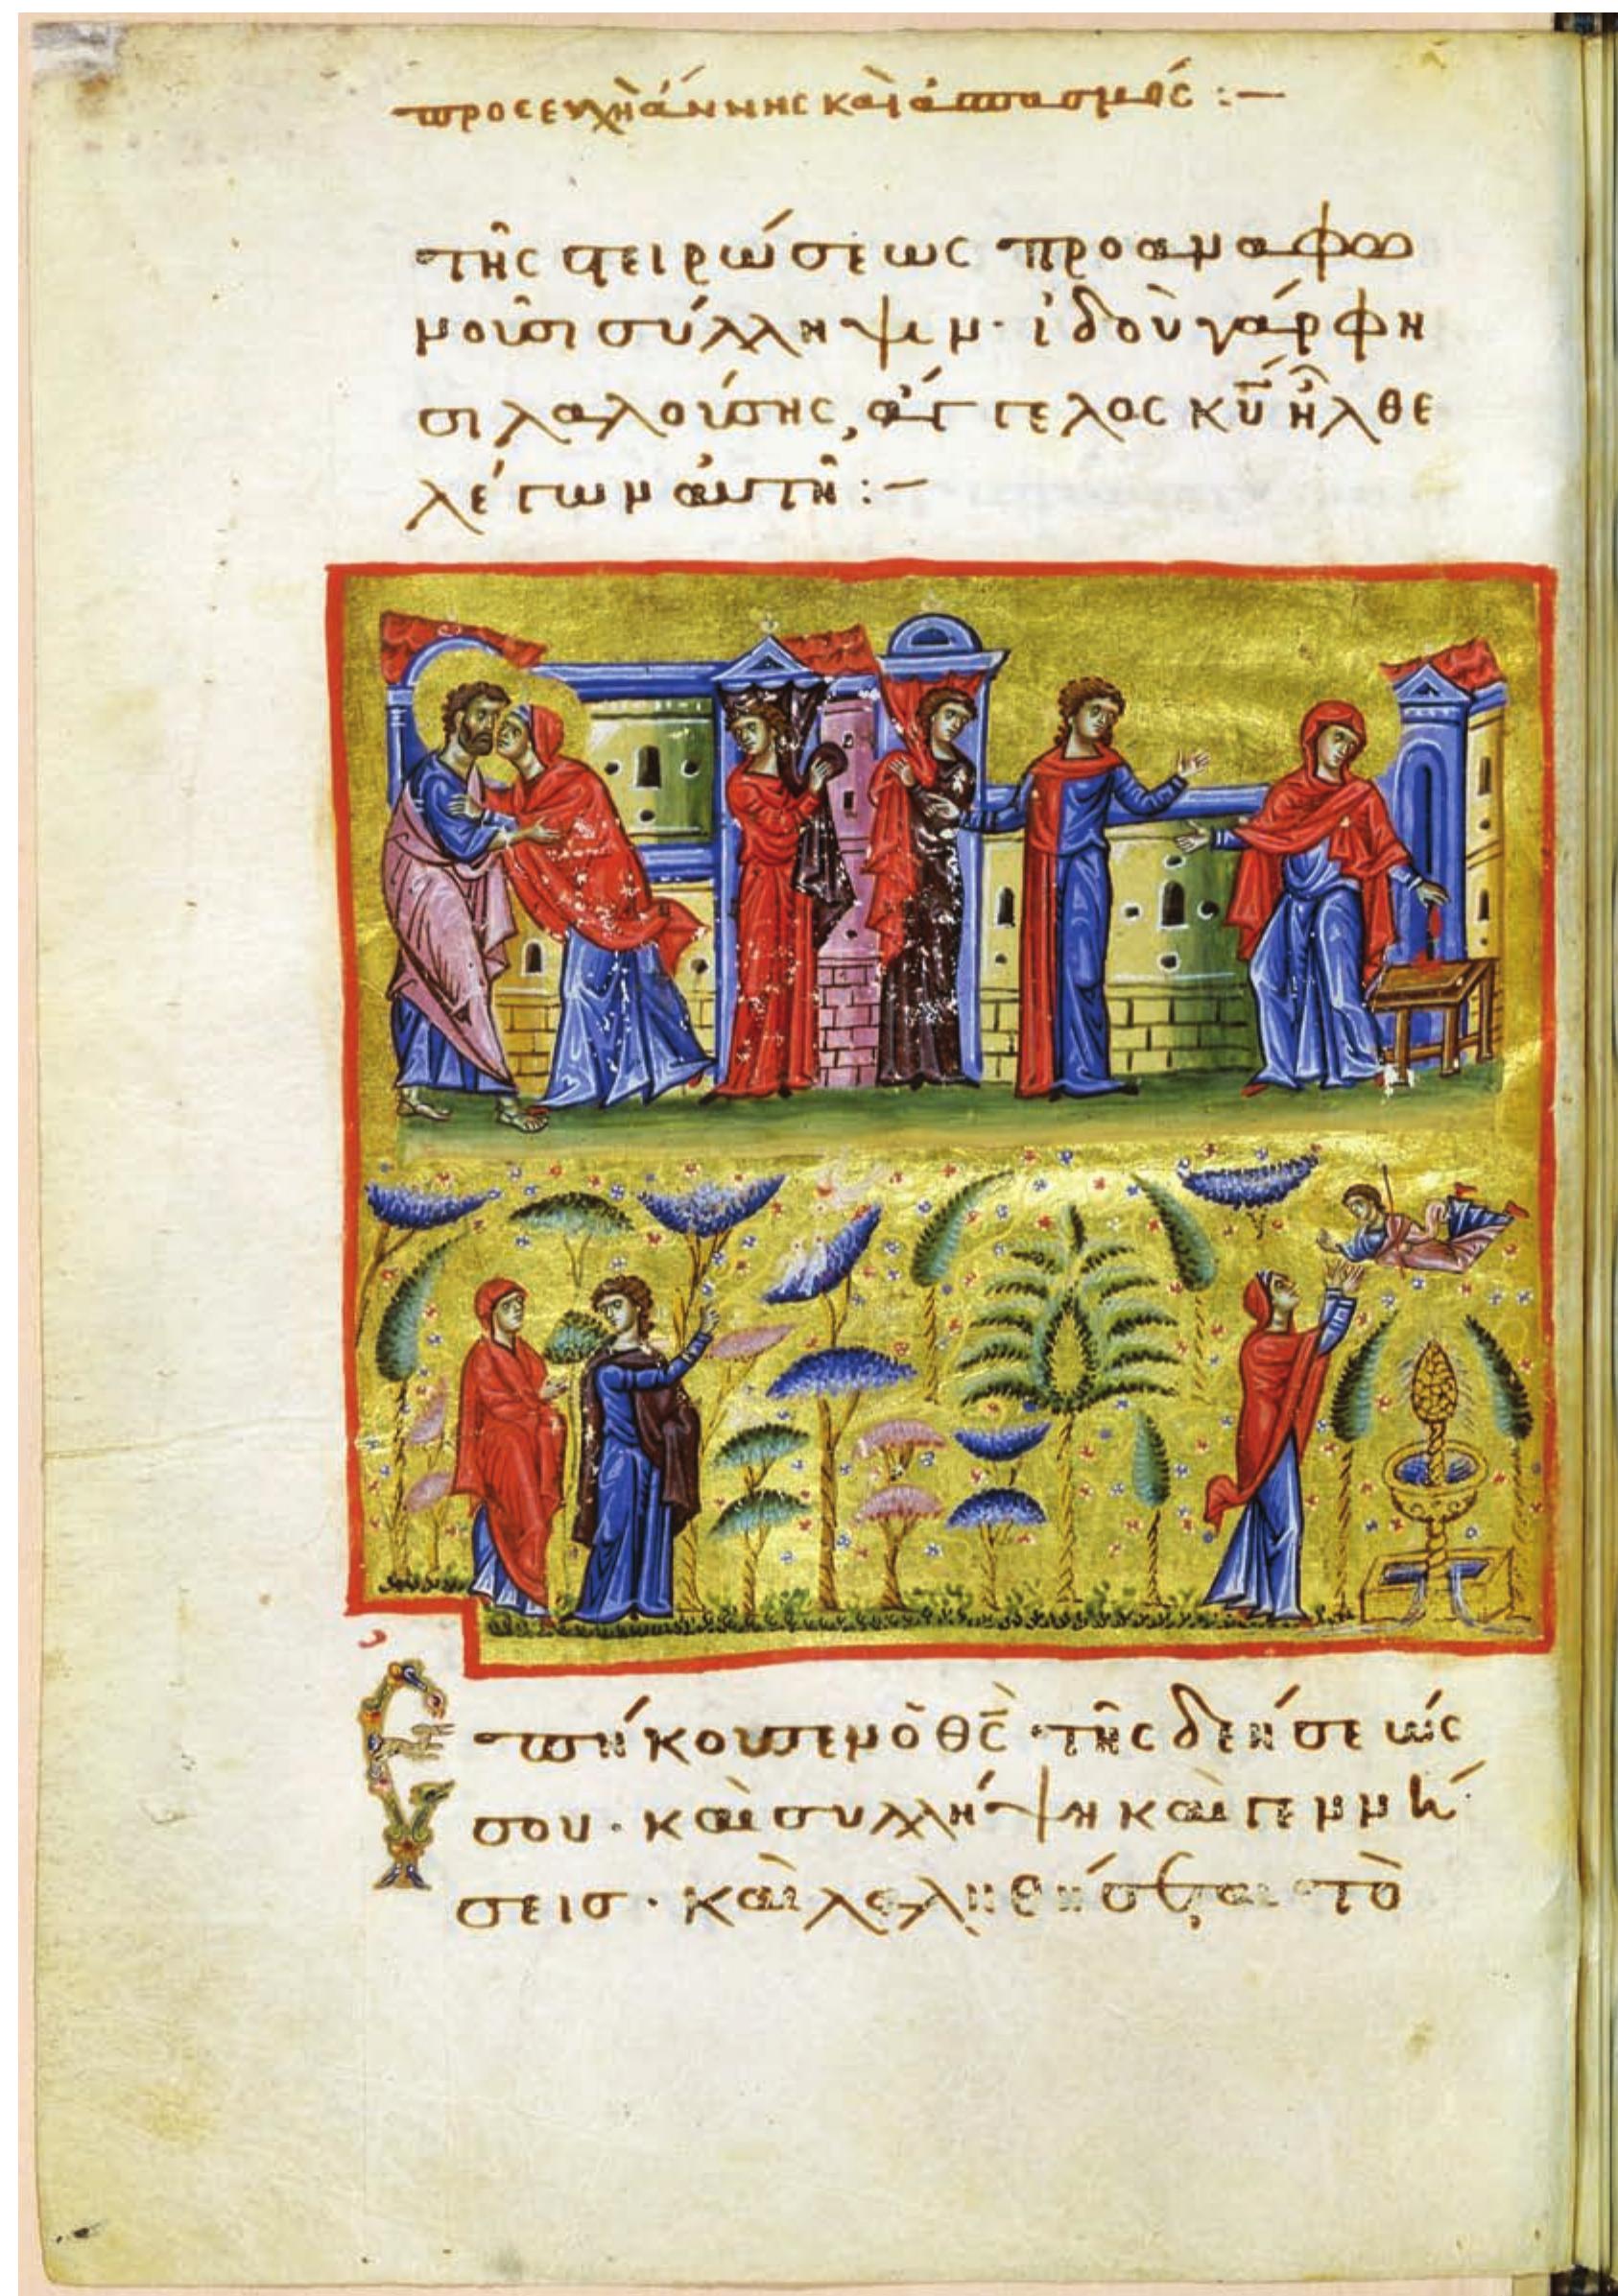 προσευχὴ ἄννης καὶ ἀσπασμός :—
τῆς στειρώσεως προαναφω
νοῦσι σύλληψιν· ἰδοὺ γάρ φη
σι λαλούσης, ἄγγελος κῡ ἦλθε
λέγων αὐτῆ :—
Ἐπήκουσεν ὁ θς̄ τῆς δεήσεώς
σου· καὶ συλλήψη καὶ γεννή
σεις· καὶ λαληθήσεται τὸ